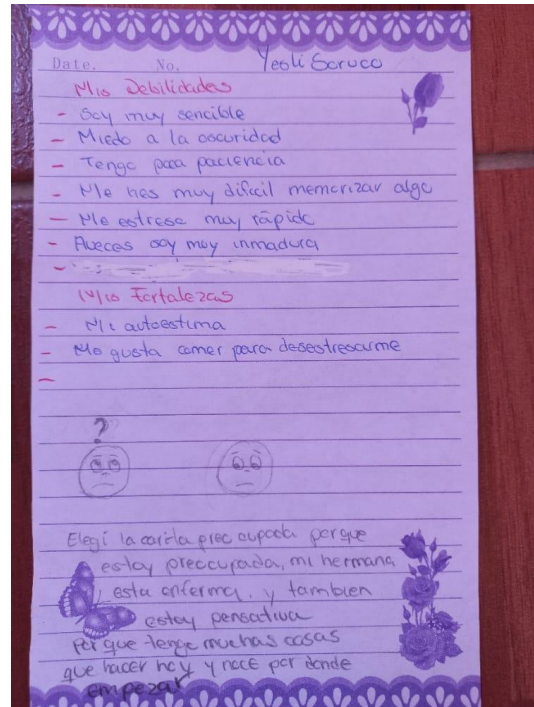 Date. No. Yesli Soruco
Mis Debilidades
- Soy muy sencible
- Miedo a la oscuridad
- Tengo poca paciencia
- Me hes muy dificil memorizar algo
- Me estreso muy rápido
- Aveces soy muy inmadura
-
Mis Fortalezas
- Mi autoestima
- Me gusta comer para desestresarme
-
?
Elegí la carita preocupada porque
estoy preocupada, mi hermana
esta enferma. y tambien
estoy pensativa
Por que tengo muchas cosas
que hacer hoy y nose por donde
empezar